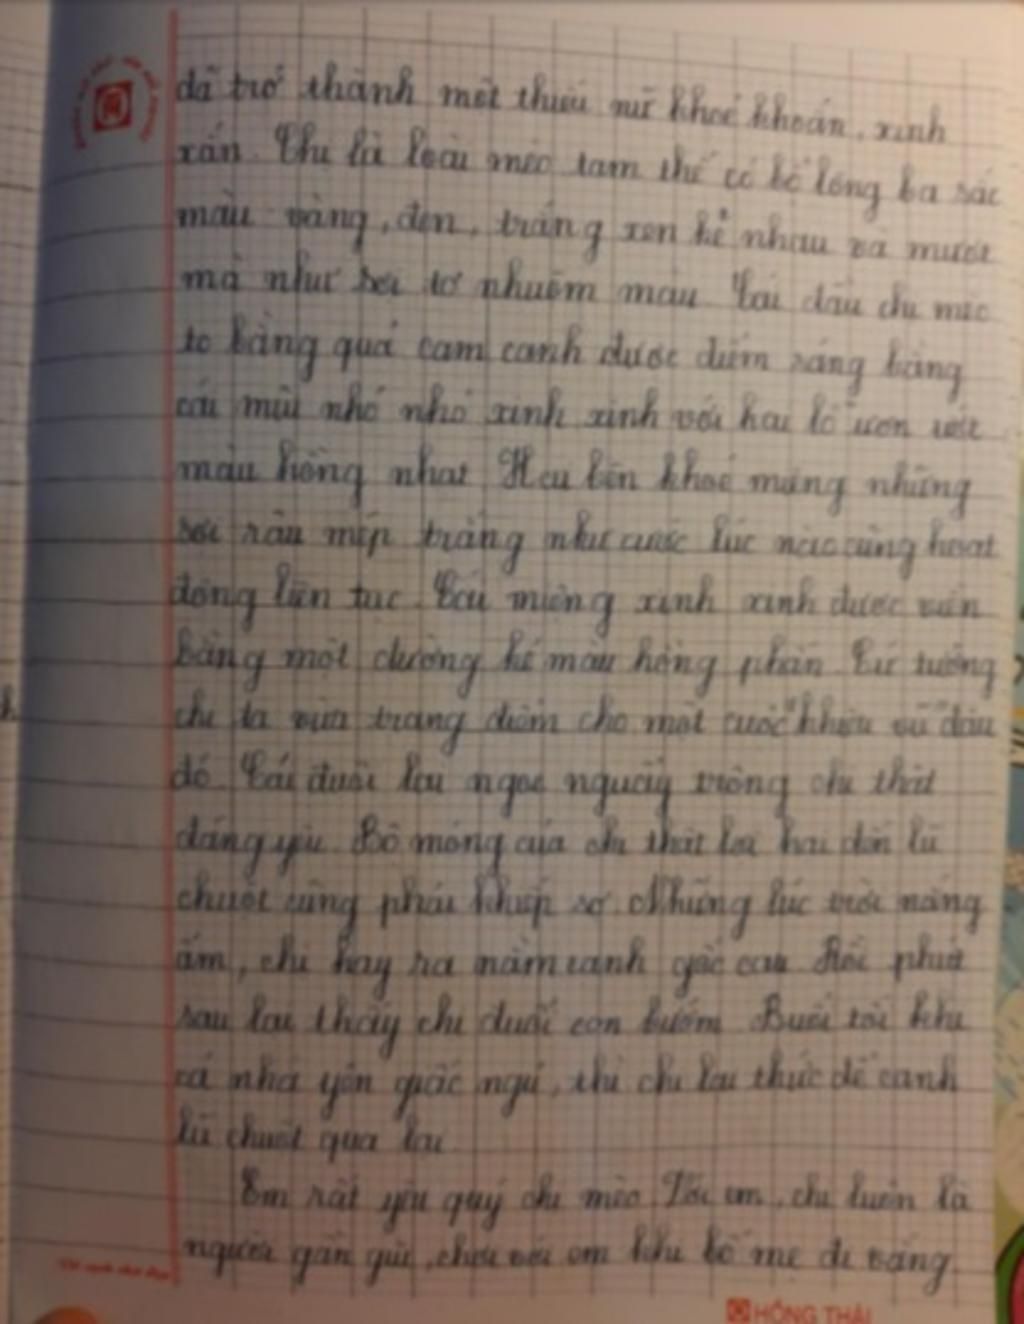 đã trở thành một thiếu nữ khoẻ khoắn, xinh
xắn. Chị là loài mèo tam thể có bộ lông ba sắc
màu vàng, đen, trắng xen kẽ nhau và mượt
mà như sợi tơ nhuộm màu. Cái đầu chị mèo
to bằng quả cam canh được điểm sáng bằng
cái mũi nhỏ nhỏ xinh xinh với hai lỗ ươn ướt
màu hồng nhạt. Hai bên khoé miệng những
sợi râu mép trắng như cước lúc nào cũng hoạt
động liên tục. Cái miệng xinh xinh được viền
bằng một đường kẻ màu hồng phấn. Cứ tưởng
chị ta vừa trang điểm cho một cuộc "khiêu vũ" đâu
đó. Cái đuôi lại ngoe nguẩy trông chị thật
đáng yêu. Bộ móng của chị thật lợi hại đến lũ
chuột cũng phải khiếp sợ. Những lúc trời nắng
ấm, chị hay ra nằm cạnh gốc cau. Rồi phút
sau lại thấy chị đuổi con bướm. Buổi tối khi
cả nhà yên giấc ngủ, thì chị lại thức để canh
lũ chuột qua lại.
Em rất yêu quý chị mèo. Với em, chị luôn là
người gần gũi, chơi với em khi bố mẹ đi vắng.
HỒNG THÁI